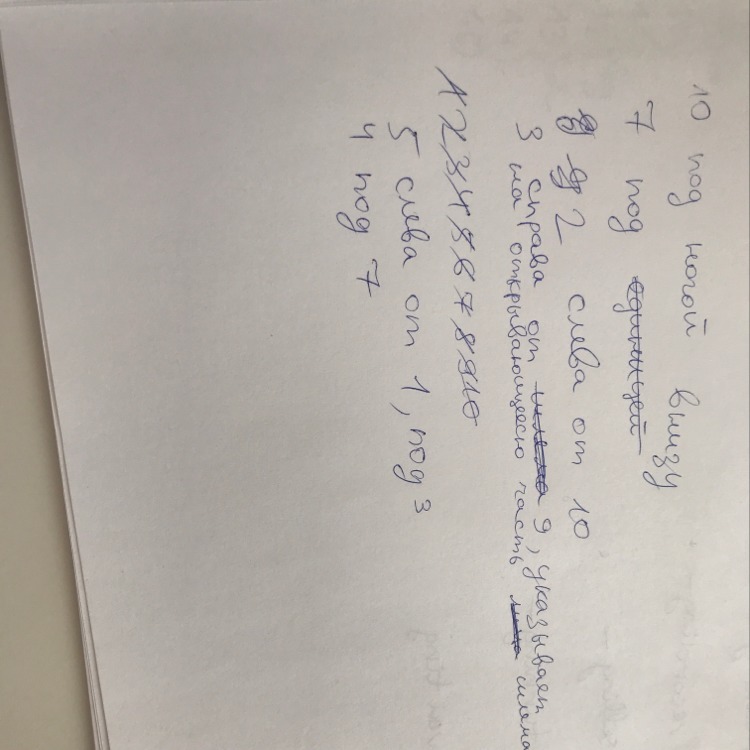 10 под ногой внизу
7 под единицей
2 слева от 10
3 справа от шлема 9, указывает
на открывающуюся часть шлема
1 2 3 4 5 6 7 8 9 10
5 слева от 1, под 3
4 под 7